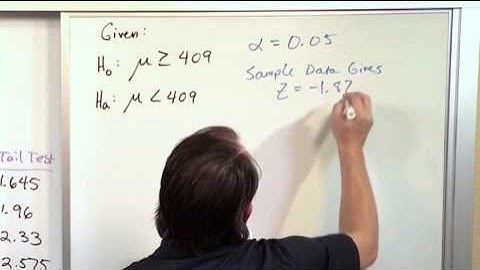 Given:
H₀: μ ≥ 409
Hₐ: μ < 409
α = 0.05
Sample Data Gives
z = -1.87
Tail Test
1.645
1.96
2.33
2.575